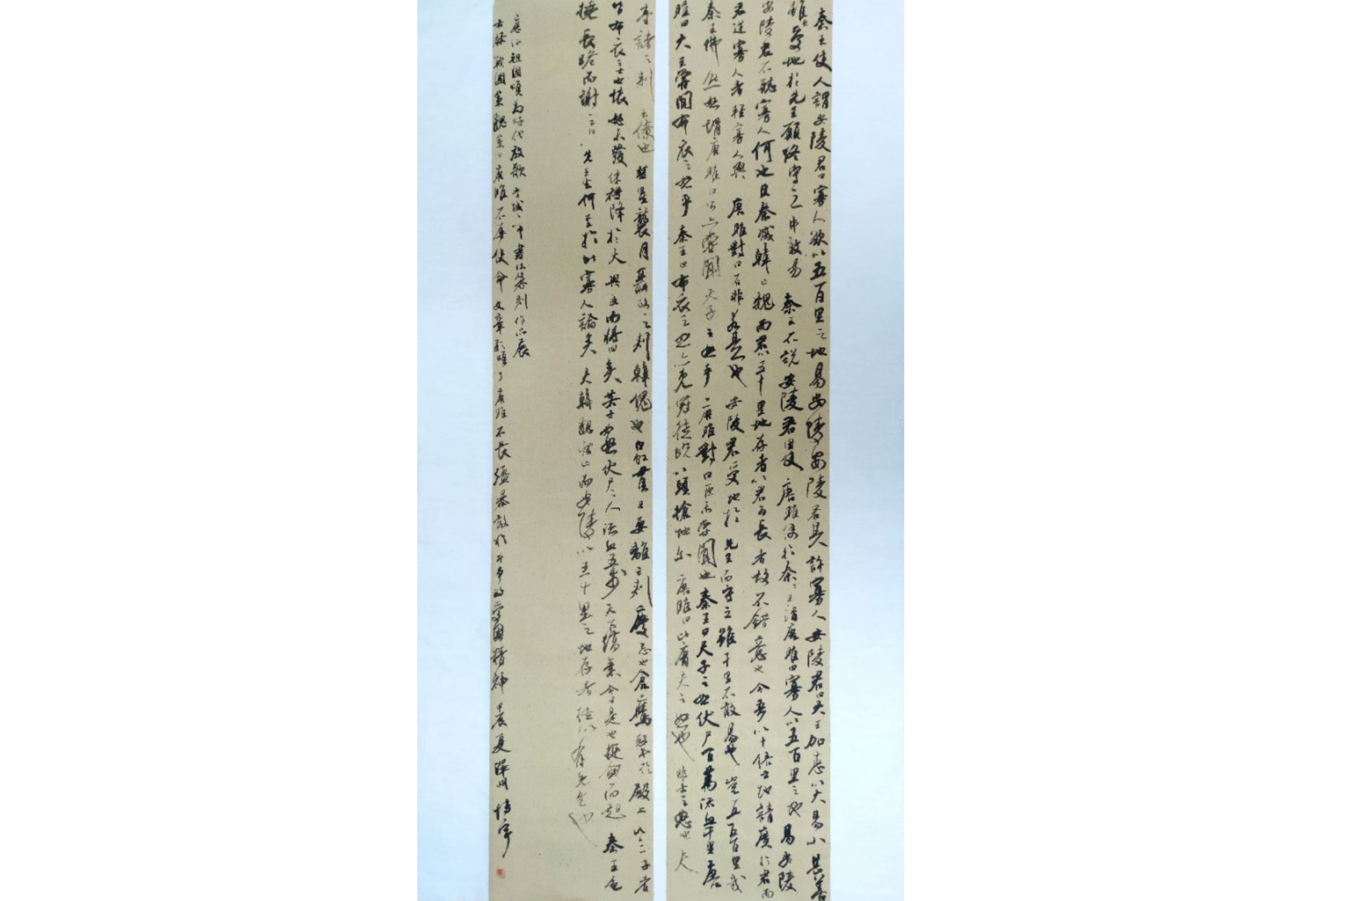 秦王使人謂安陵君曰寡人欲以五百里之地易安陵安陵君其許寡人安陵君曰大王加惠以大易小甚善
雖然受地於先王願終守之弗敢易秦王不說安陵君因使唐雎使於秦秦王謂唐雎曰寡人以五百里之地易安陵
安陵君不聽寡人何也且秦滅韓亡魏而君以五十里地存者以君為長者故不錯意也今吾以十倍之地請廣於君而
君逆寡人者輕寡人與唐雎對曰否非若是也安陵君受地於先王而守之雖千里不敢易也豈直五百里哉
秦王怫然怒謂唐雎曰公亦嘗聞天子之怒乎唐雎對曰臣未嘗聞也秦王曰天子之怒伏尸百萬流血千里唐
雎曰大王嘗聞布衣之怒乎秦王曰布衣之怒亦免冠徒跣以頭搶地爾唐雎曰此庸夫之怒也非士之怒也夫
專諸之刺王僚也彗星襲月聶政之刺韓傀也白虹貫日要離之刺慶忌也倉鷹擊於殿上此三子者
皆布衣之士也懷怒未發休祲降於天與臣而將四矣若士必怒伏尸二人流血五步天下縞素今是也挺劍而起秦王色
撓長跪而謝之曰先生坐何至於此寡人諭矣夫韓魏滅亡而安陵以五十里之地存者徒以有先生也
祖國頌為時代放歌書法篆刻作品展
古錄戰國策魏策唐雎不辱使命文章彰顯了唐雎不畏強暴敢於鬥爭的愛國精神甲辰夏